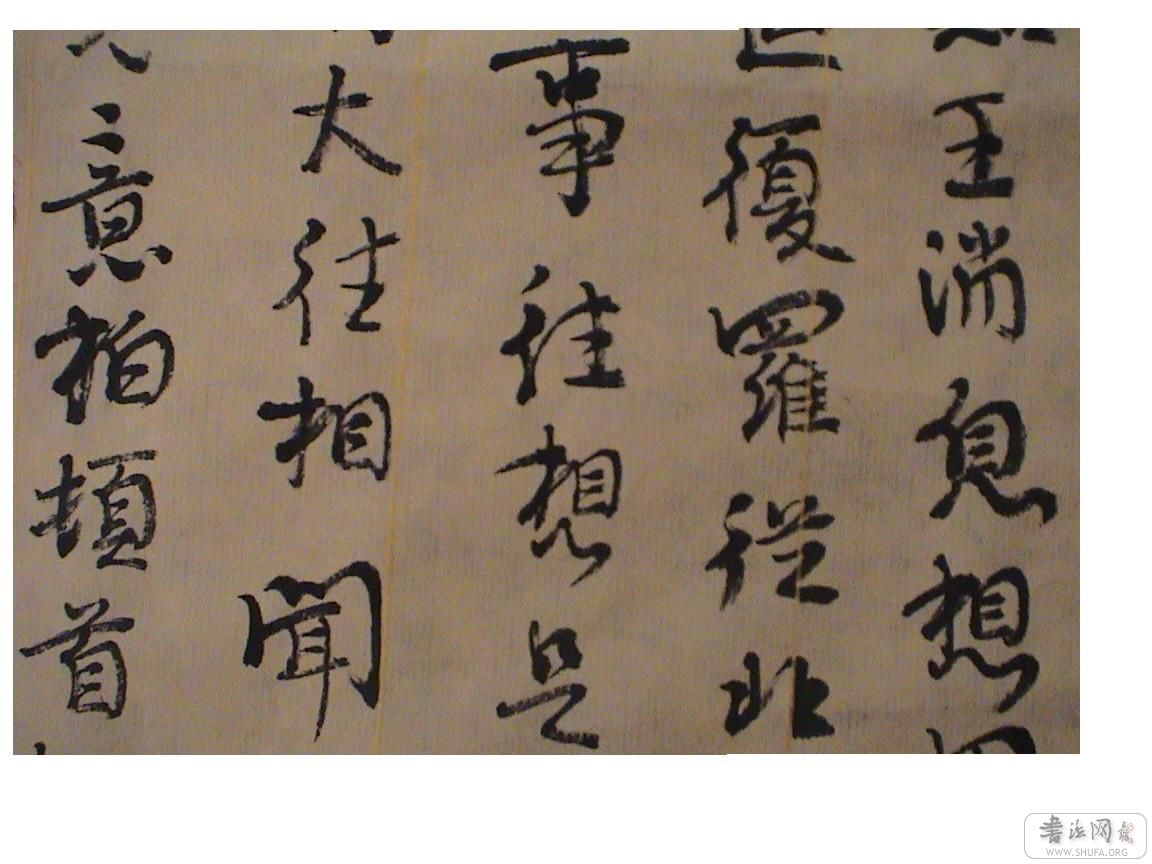 王消息想
復羅從北
事往想是
大往相聞
意柏頓首
書法网
WWW.SHUFA.ORG